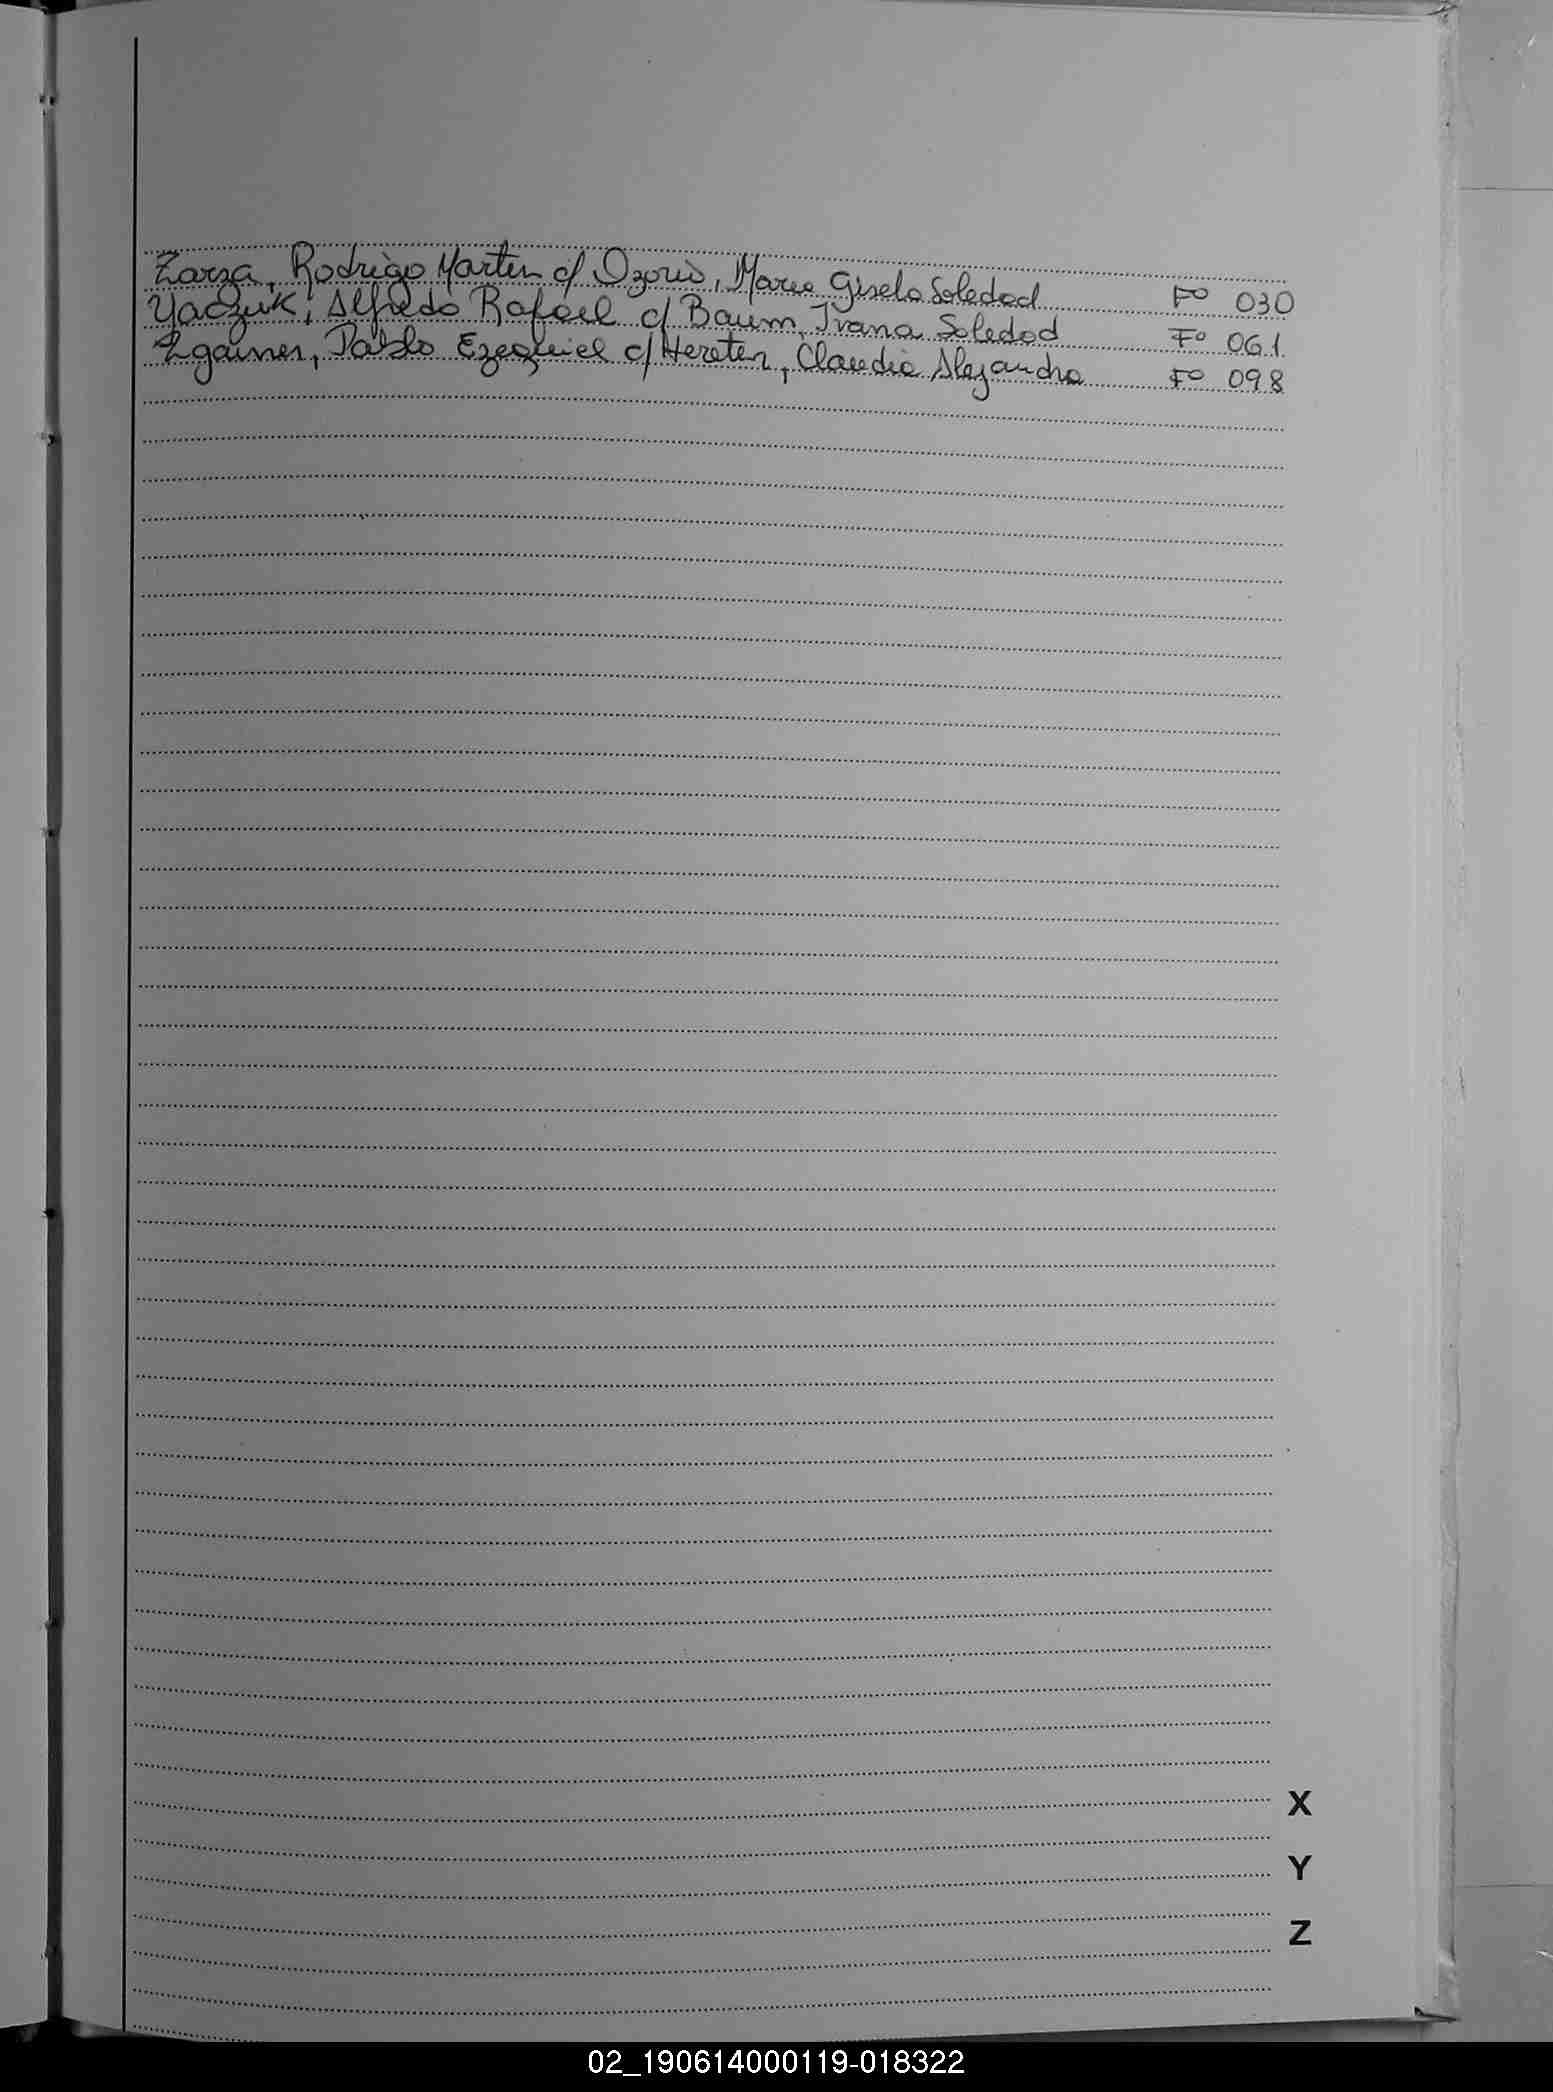 Zarza, Rodrigo Martin c/ Ozorio, Maria Gisela Soledad Fº 030
Yaczuk, Alfredo Rafael c/ Baum, Ivana Soledad Fº 061
Pablo Ezequiel c/ Claudia Alejandra Fº 098
X
Y
Z
02_190614000119-018322